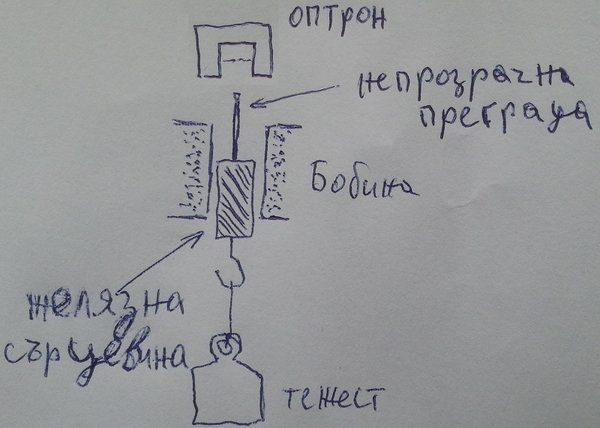 оптрон
непрозрачна
преграда
Бобина
желязна
сърцевина
тежест